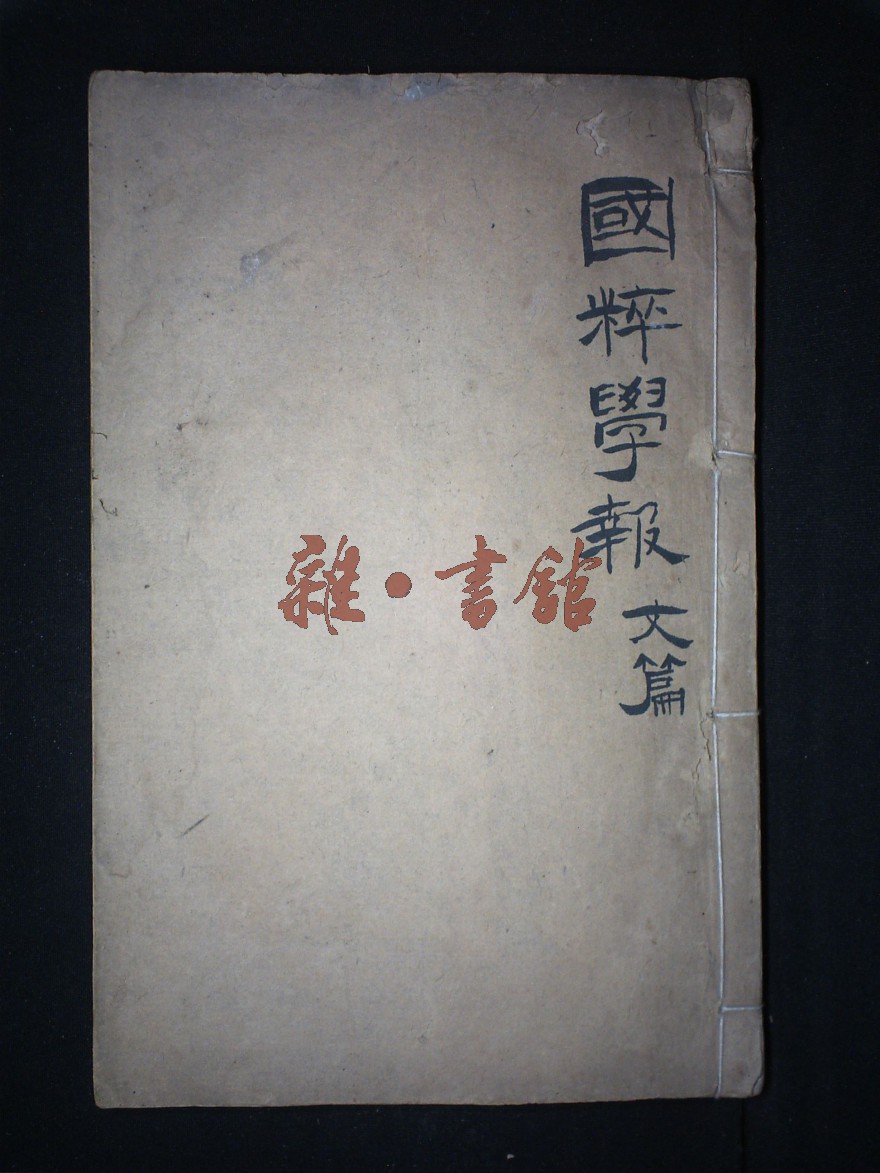 國粹學報
文篇
雜·書館